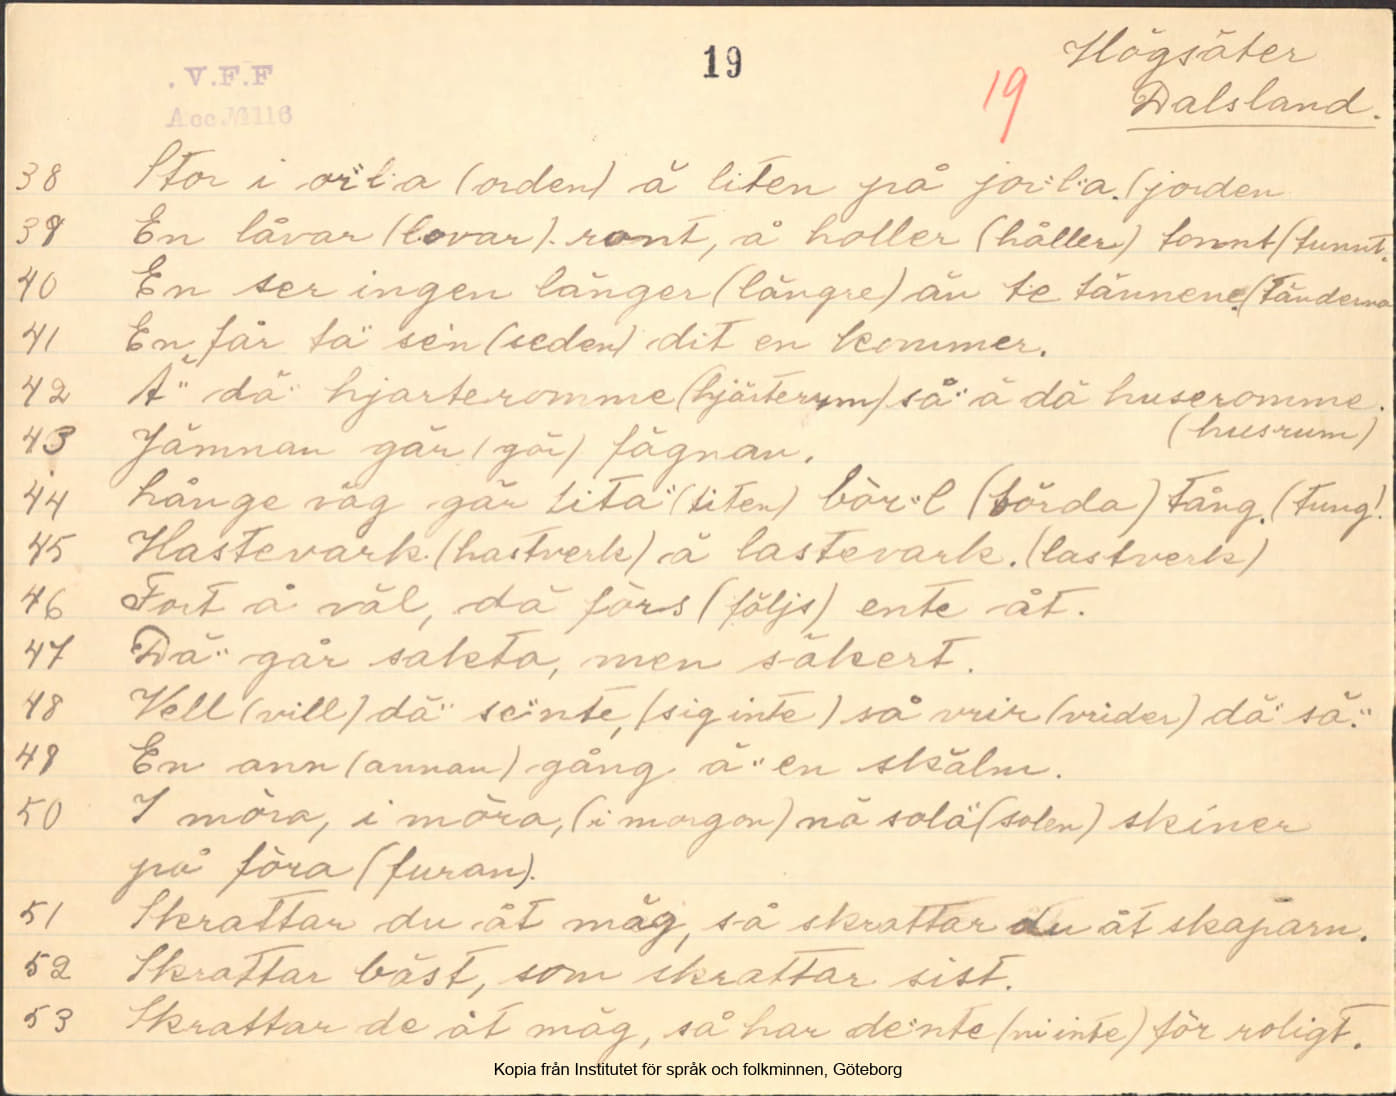 19
Högsäter
. V.F.F
19
Dalsland.
Acc. № 116
38 Stor i or̈l̈a (orden) ä liten på jor̈l̈a. (jorden
39 En låvar (lovar). ront, å holler (håller) tonnt (tunnt.
40 En ser ingen länger (längre) än te tännene. (tänderna
41 En får ta sen (seden) dit en kommer.
42 Ä dä hjarteromme (hjärterum) så ä dä huseromme.
(husrum)
43 Jämnan gär (gör) fägnan.
44 Långe väg gär lita (liten) bör̈l (börda) tång. (tung!
45 Hastevark. (hastverk) ä lastevark. (lastverk)
46 Fort å väl, dä förs (följs) ente åt.
47 Dä går sakta, men säkert.
48 Vell (vill) dä seinte, (sig inte) så vrir (vrider) dä sä.
49 En ann (annan) gång ä en skälm.
50 I möra, i möra, (i morgon) nä solä (solen) skiner
på föra (furan).
51 Skrattar du åt mäg, så skrattar du åt skaparn.
52 Skrattar bäst, som skrattar sist.
53 Skrattar de åt mäg, så har deinte (ni inte) för roligt.
Kopia från Institutet för språk och folkminnen, Göteborg